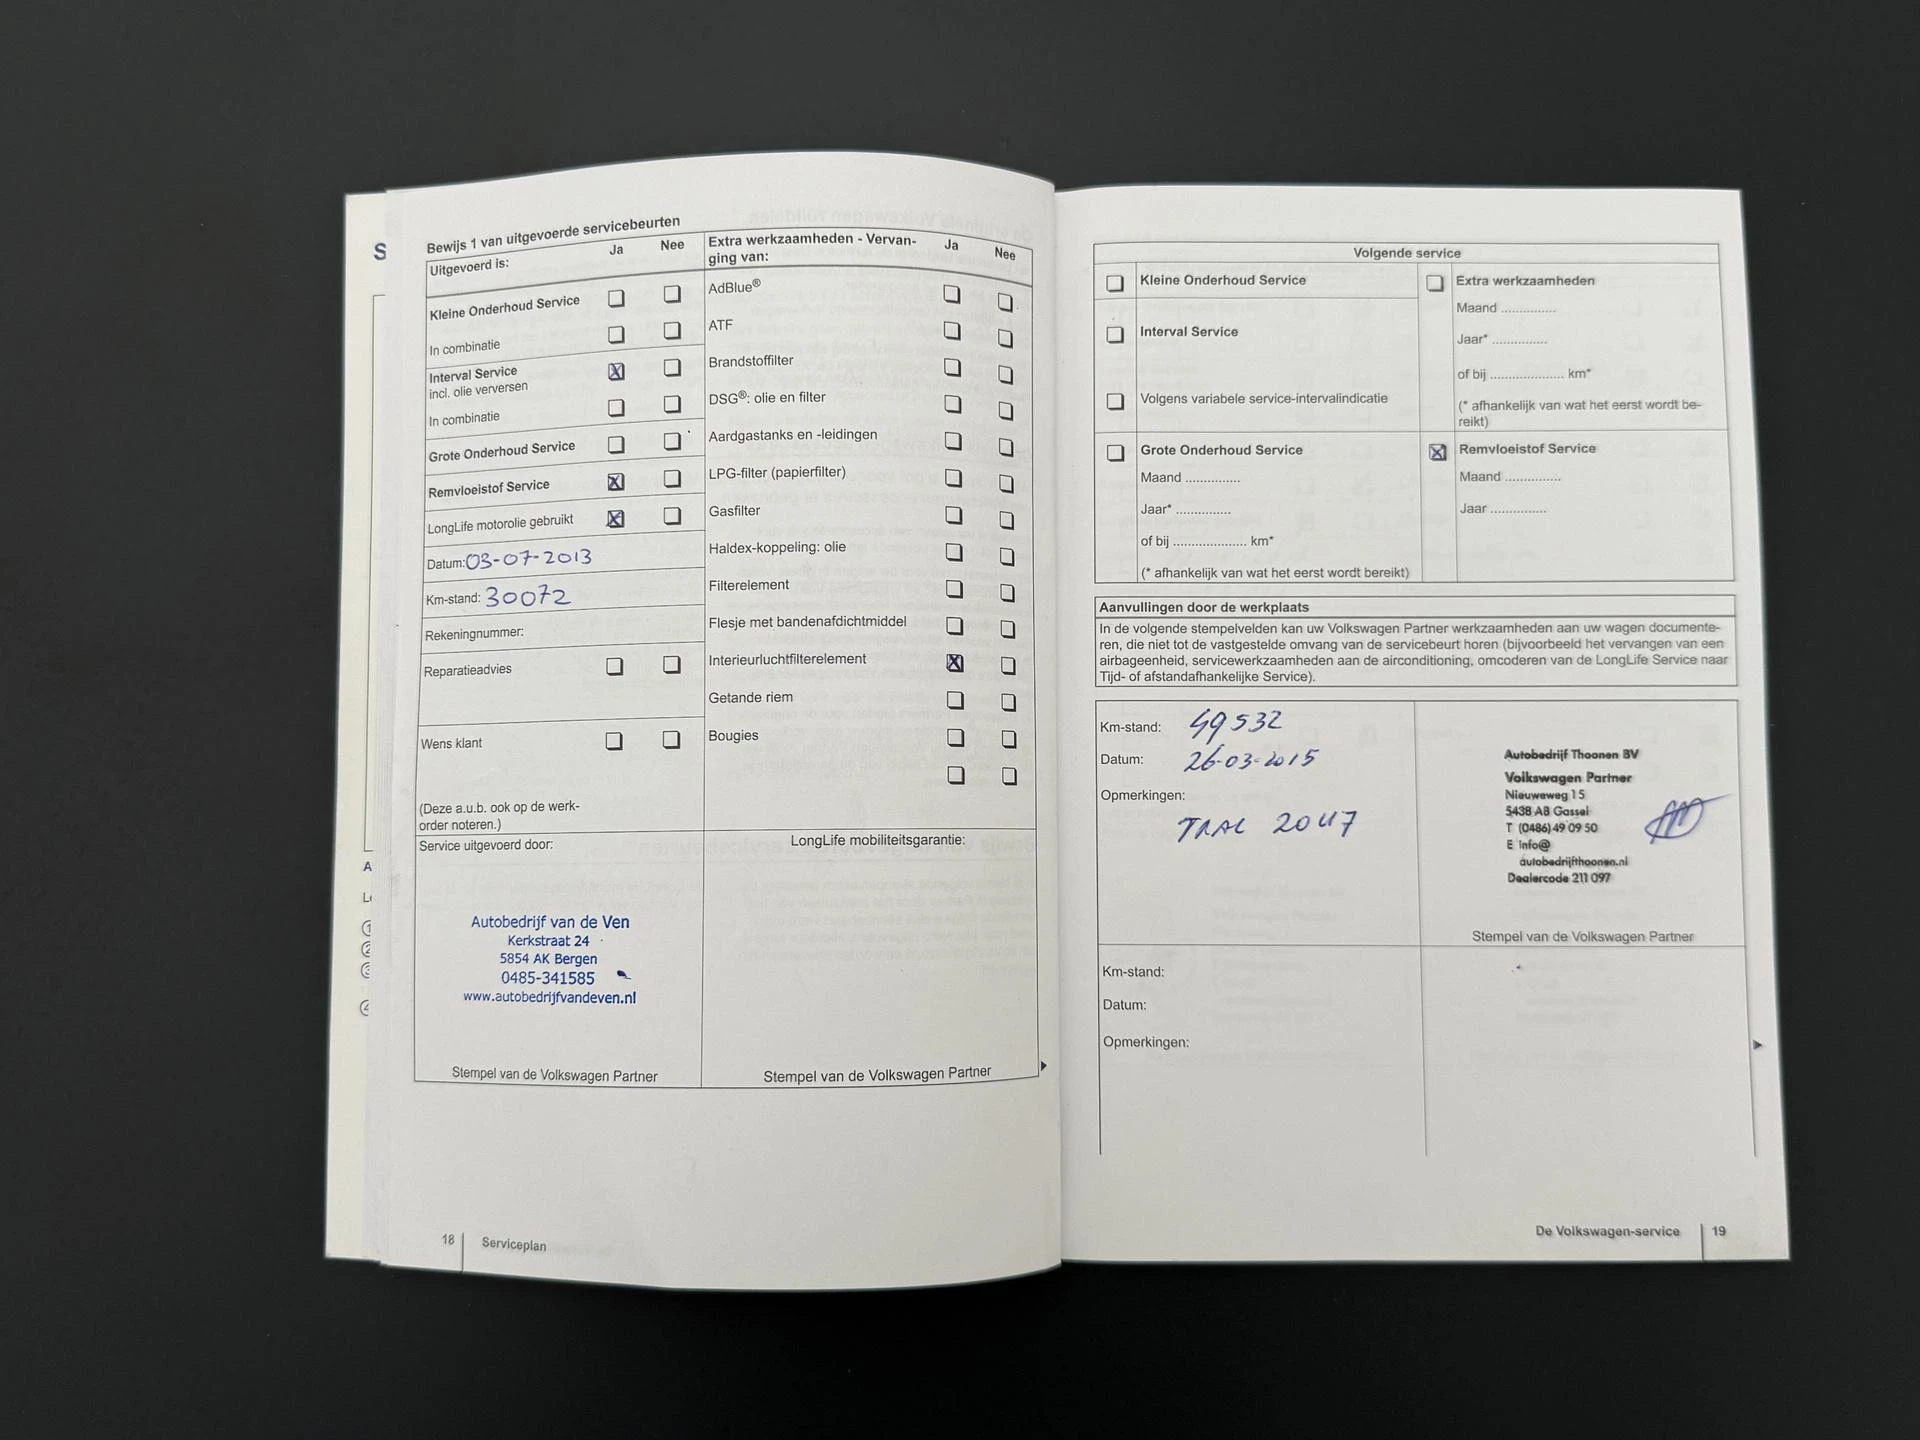 Bewijs 1 van uitgevoerde servicebeurten
Uitgevoerd is:
Ja
Nee
Kleine Onderhoud Service
In combinatie
Interval Service
incl. olie verversen
In combinatie
Grote Onderhoud Service
Remvloeistof Service
LongLife motorolie gebruikt
Datum: 03-07-2013
Km-stand: 30072
Rekeningnummer:
Reparatieadvies
Wens klant
(Deze a.u.b. ook op de werk-
order noteren.)
Extra werkzaamheden - Vervan-
ging van:
Ja
Nee
AdBlue®
ATF
Brandstoffilter
DSG®: olie en filter
Aardgastanks en -leidingen
LPG-filter (papierfilter)
Gasfilter
Haldex-koppeling: olie
Filterelement
Flesje met bandenafdichtmiddel
Interieurluchtfilterelement
Getande riem
Bougies
Service uitgevoerd door:
Autobedrijf van de Ven
Kerkstraat 24
5854 AK Bergen
0485-341585
www.autobedrijfvandeven.nl
Stempel van de Volkswagen Partner
LongLife mobiliteitsgarantie:
Stempel van de Volkswagen Partner
18
Serviceplan
Volgende service
Kleine Onderhoud Service
Interval Service
Volgens variabele service-intervalindicatie
Extra werkzaamheden
Maand ..............
Jaar* ..............
of bij ................... km*
(* afhankelijk van wat het eerst wordt be-
reikt)
Grote Onderhoud Service
Maand ..............
Jaar* ..............
of bij ................... km*
(* afhankelijk van wat het eerst wordt bereikt)
Remvloeistof Service
Maand ..............
Jaar ..............
Aanvullingen door de werkplaats
In de volgende stempelvelden kan uw Volkswagen Partner werkzaamheden aan uw wagen documente-
ren, die niet tot de vastgestelde omvang van de servicebeurt horen (bijvoorbeeld het vervangen van een
airbageenheid, servicewerkzaamheden aan de airconditioning, omcoderen van de LongLife Service naar
Tijd- of afstandafhankelijke Service).
Km-stand: 49532
Datum: 26-03-2015
Opmerkingen:
Autobedrijf Thoonen BV
Volkswagen Partner
Nieuweweg 15
5438 AB Gassel
T (0486) 49 09 50
E info@
autobedrijfthoonen.nl
Dealercode 211 097
Stempel van de Volkswagen Partner
Km-stand:
Datum:
Opmerkingen:
De Volkswagen-service
19